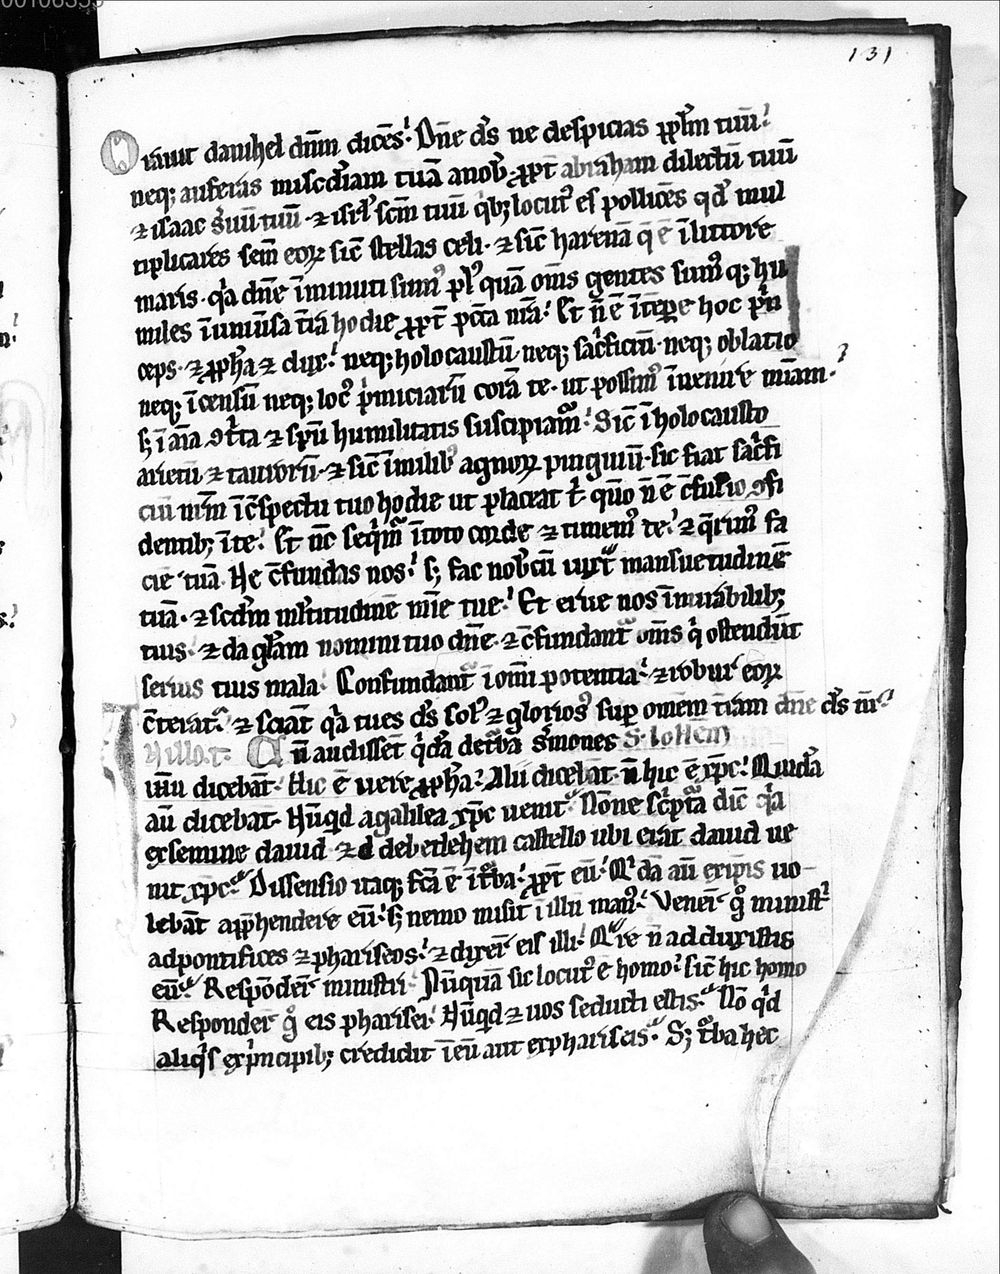 131
Orauit danihel dn̄m dicēs. Dn̄e ds̄ ne despicias ppl̄m tuū.
neq; auferas misc̄diam tuā a nob̄ ꝓpt̄ abraham dilectū tuū
⁊ isaac s̄uū tuū ⁊ isrl̄ sc̄m tuū qͥb; locutꝰ es pollicēs qd̄ mul
tiplicares sem̄ eoꝝ sic̄ stellas celi. ⁊ sic̄ harenā q̄ ē ī littore
maris. qͥa dn̄e īminuti sumꝰ plꝰ quā om̄s gentes sumꝰ q; hu
miles ī uniūsa t̄ra hodie ꝓpt̄ pcc̄a nr̄a. Et n̄ ē ī tēpore hoc pͥn
ceps. ⁊ ꝓph̄a ⁊ dux. neq; holocaustū neq; sac̄ficiū. neq; oblatio
neq; īcensū neq; locꝰ pͥmiciarū corā te. ut possimꝰ īuenire mīam.
s; ī aīa ꝯt̄ta ⁊ sp̄u humilitatis suscipiamᷣ. Sic̄ ī holocausto
arietū ⁊ tauroꝝ. ⁊ sic̄ ī milib; agnoꝝ pinguiū. sic fiat sac̄fi
ciū nr̄m ī c̄spectu tuo hodie ut placeat t̄. qm̄ n̄ ē c̄fusio ꝯfi
dentib; ī te. Et nc̄ seqͥmᷣ ī toto corde ⁊ timemꝰ te. ⁊ q̄rimꝰ fa
ciē tuā. Ne c̄fundas nos. s; fac nobcū iuxͭ mansuetudinē
tuā. ⁊ scdm̄ mltitudinē mīe tue. Et erue nos ī mirabilib;
tuis. ⁊ da glam̄ nomini tuo dn̄e. ⁊ c̄fundantᷣ om̄s qͥ ostendūt
seruis tuis mala. Confundantᷣ ī om̄i potentia. ⁊ robur eoꝝ
c̄teratᷣ. ⁊ sciāt qͥa tu es ds̄ solꝰ ⁊ gloriosꝰ sup om̄em t̄ram dn̄e ds̄ nr̄
In illo t. Cū audisset qͥdā de t̄ba s̄mones S. Ioh̄em
ih̄u dicebāt. Hic ē uere ꝓph̄a. Alii dicebāt. n̄ hic ē xp̄c. Quidā
aū dicebāt. Nūqd a galilea xp̄c uenit. Nōne sc̄pta dic̄ qͥa
ex semine dauid ⁊ d de bethlehem castello ubi erāt dauid ue
nit xp̄c. Dissensio itaq; fc̄a ē ī t̄ba. ꝓpt̄ eū. Qͥdā aū ex ip̄is uo
lebāt app̄hendere eū. s; nemo misit ī illū manꝰ. Venerͭ gͦ ministͥ
ad pontifices ⁊ phariseos. ⁊ dixerͭ eis illi. Qͣre n̄ adduxistis
eū. Respōderͭ ministri. Nūquā sic locutꝰ ē homo. sic̄ hic homo
Responderͭ gͦ eis pharisei. Nūqd ⁊ uos seducti estis. Nō qͥd
aliqͥs ex pͥncipib; credidit ī eū aut ex phariseis. S; t̄ba hec